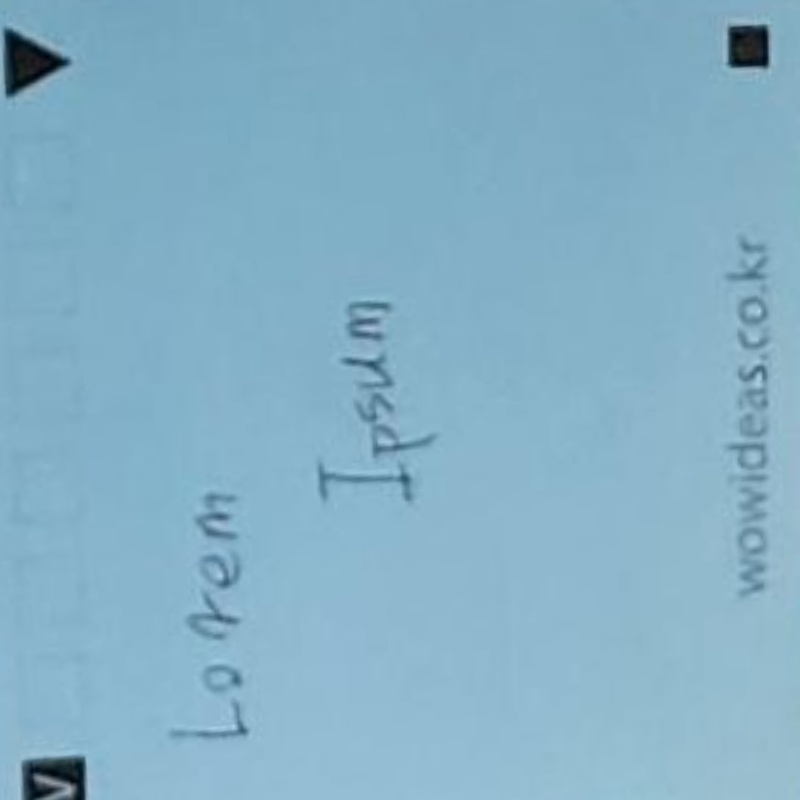 Lorem
Ipsum
wowideas.co.kr